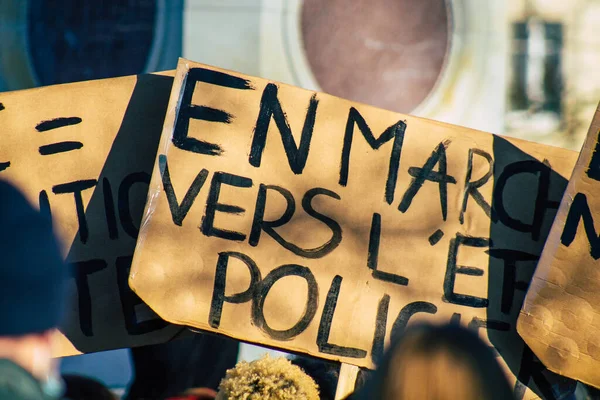 EN MARCHE
VERS L'ÉTAT
POLICIER